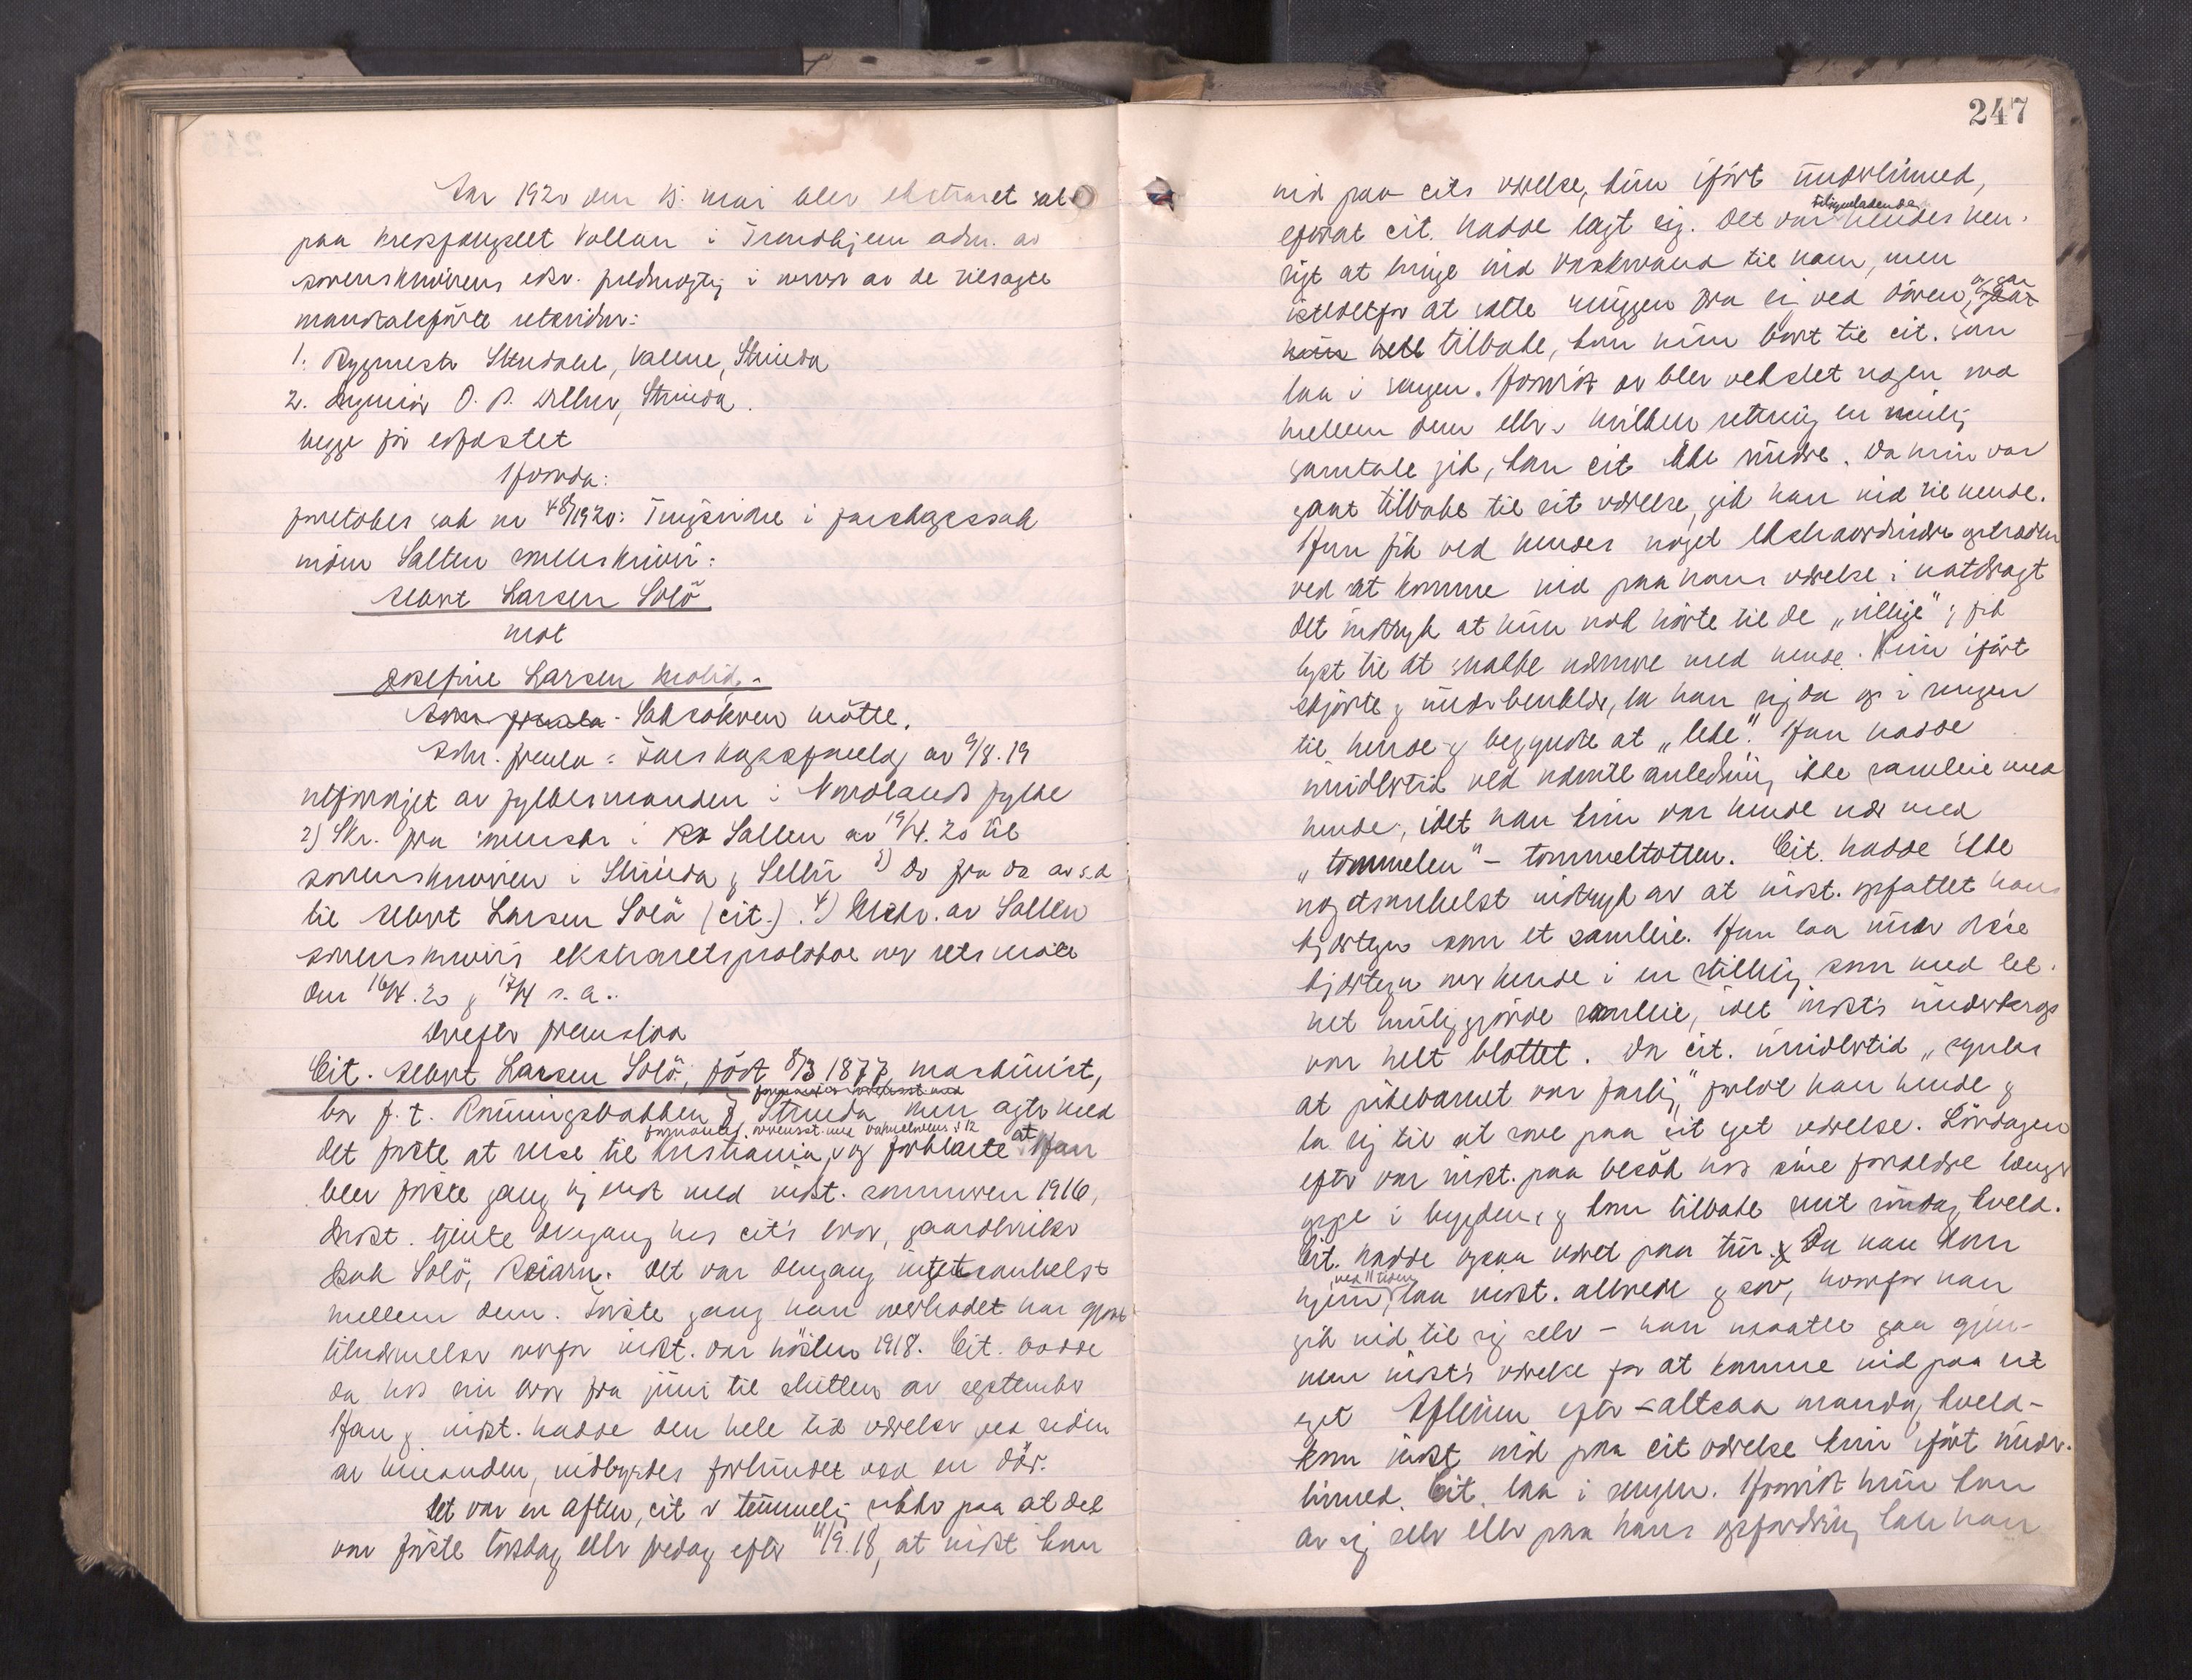 Aar 1920 den 15. mai blev ekstraret sat
paa kredsfængslet Vollan i Trondhjem adm. av
sorenskriverens edsv. fuldmægtig i nærvær av de tilsagte
mandtalsførte retsvidner:
1. Bygmester Stendahl, Valene, Strinda
2. Ingeniør O. P. Strinda.
begge før edfæstet
Hvorda:
foretokes sak nr 48/1920: Tingsvidne i farskapssak
inden Salten sorenskriveri:
Albert Larsen Solö
mot
Josefine Larsen
Adm. fremla - Saksökeren mötte.
Adm. fremla: Farskapsforelæg av 9/8.19
utfærdiget av fylkesmanden i Nordlands fylke
2) Skr. fra sorenskr i Salten av 19/4.20 til
sorenskriveren i Strinda & Selbu 3) Do fra do av s.d
til Albert Larsen Solö (cit.). 4) Utskr. av Salten
sorenskriveris ekstraretsprotokol over retsmöte
den 16/4.20 & 17/4 s.a..
Derefter fremstod
Cit. Albert Larsen Solö, född 8/3 1877, maskinist,
bor p. t. Ronningsbakken Strinda, men agter med
formanet overensst. med vidneloven § 12
det förste at reise til Kristiania, og forklarte at Han
blev förste gang kjendt med indst. sommeren 1916,
Indst. tjente dengang hos cit's bror, gaardbruker
Isak Solö, Beiarn. Det var dengang intetsomhelst
mellem dem. Förste gang han overhodet har gjort
tilnærmelser overfor indst. var hösten 1918. Cit. bodde
da hos sin bror fra juni til slutten av september
Han & indst. hadde den hele tid værelser ved siden
av hinanden, indbyrdes forbundet ved en dör.
Det var en aften, cit er temmelig sikker paa at det
var förste torsdag eller fredag efter 11/9.18, at indst kom
247
ind paa cits værelse, kun ifört underlinned,
efterat cit. hadde lagt sig. Det var tilsyneladende hendes hen-
sigt at bringe ind vaskevand til ham, men
istedetfor at sætte muggen fra sig ved dören, og gaa
tilbake, kom hun bort til cit. som
laa i sengen. Hvorvidt der blev vekslet nogen ord
mellem dem eller i hvilken retning en mulig
samtale gik, kan cit ikke erindre. Da hun var
gaat tilbake til sit værelse, gik han ind til hende.
Han fik ved hendes noget ekstraordinære optræden
ved at komme ind paa hans værelse i natdragt
det indtryk at hun nok hörte til de "villige"; fik
lyst til at snakke nærmere med hende. Kun ifört
skjorte & underbenklær, la han sig da op i sengen
til hende & begyndte at "leke". Han hadde
imidlertid ved nævnte anledning ikke samleie med
hende, idet han kun var hende nær med
"tommelen" - tommeltotten. Cit. hadde ikke
nogetsomhelst indtryk av at indst. opfattet hans
kjærtegn som et samleie. Han laa under disse
kjærtegn over hende i en stilling som med let-
het muliggjorde samleie, idet indst's underkrop
var helt blottet. Da cit. imidlertid "syntes
at pikebarnet var farlig," forlot han hende &
la sig til at sove paa sit eget værelse. Lördagen
efter var indst. paa besök hos sine forældre længer
oppe i bygden, & kom tilbake sent söndag kveld.
Cit. hadde ogsaa været paa tur. Da han kom
hjem, ved 11 tiden laa indst. allerede & sov, hvorfor han
gik ind til sig selv - han maatte gaa gjen-
nem indst's værelse for at komme ind paa sit
eget Aftenen efter - altsaa mandag kveld -
kom indst ind paa cit værelse kun ifört under-
linned. Cit. laa i sengen. Hvorvidt hun kom
av sig selv eller paa hans opfordring kan han